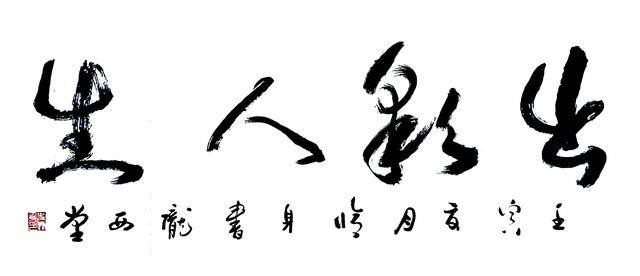 出彩人生
壬寅夏月身書隴西堂